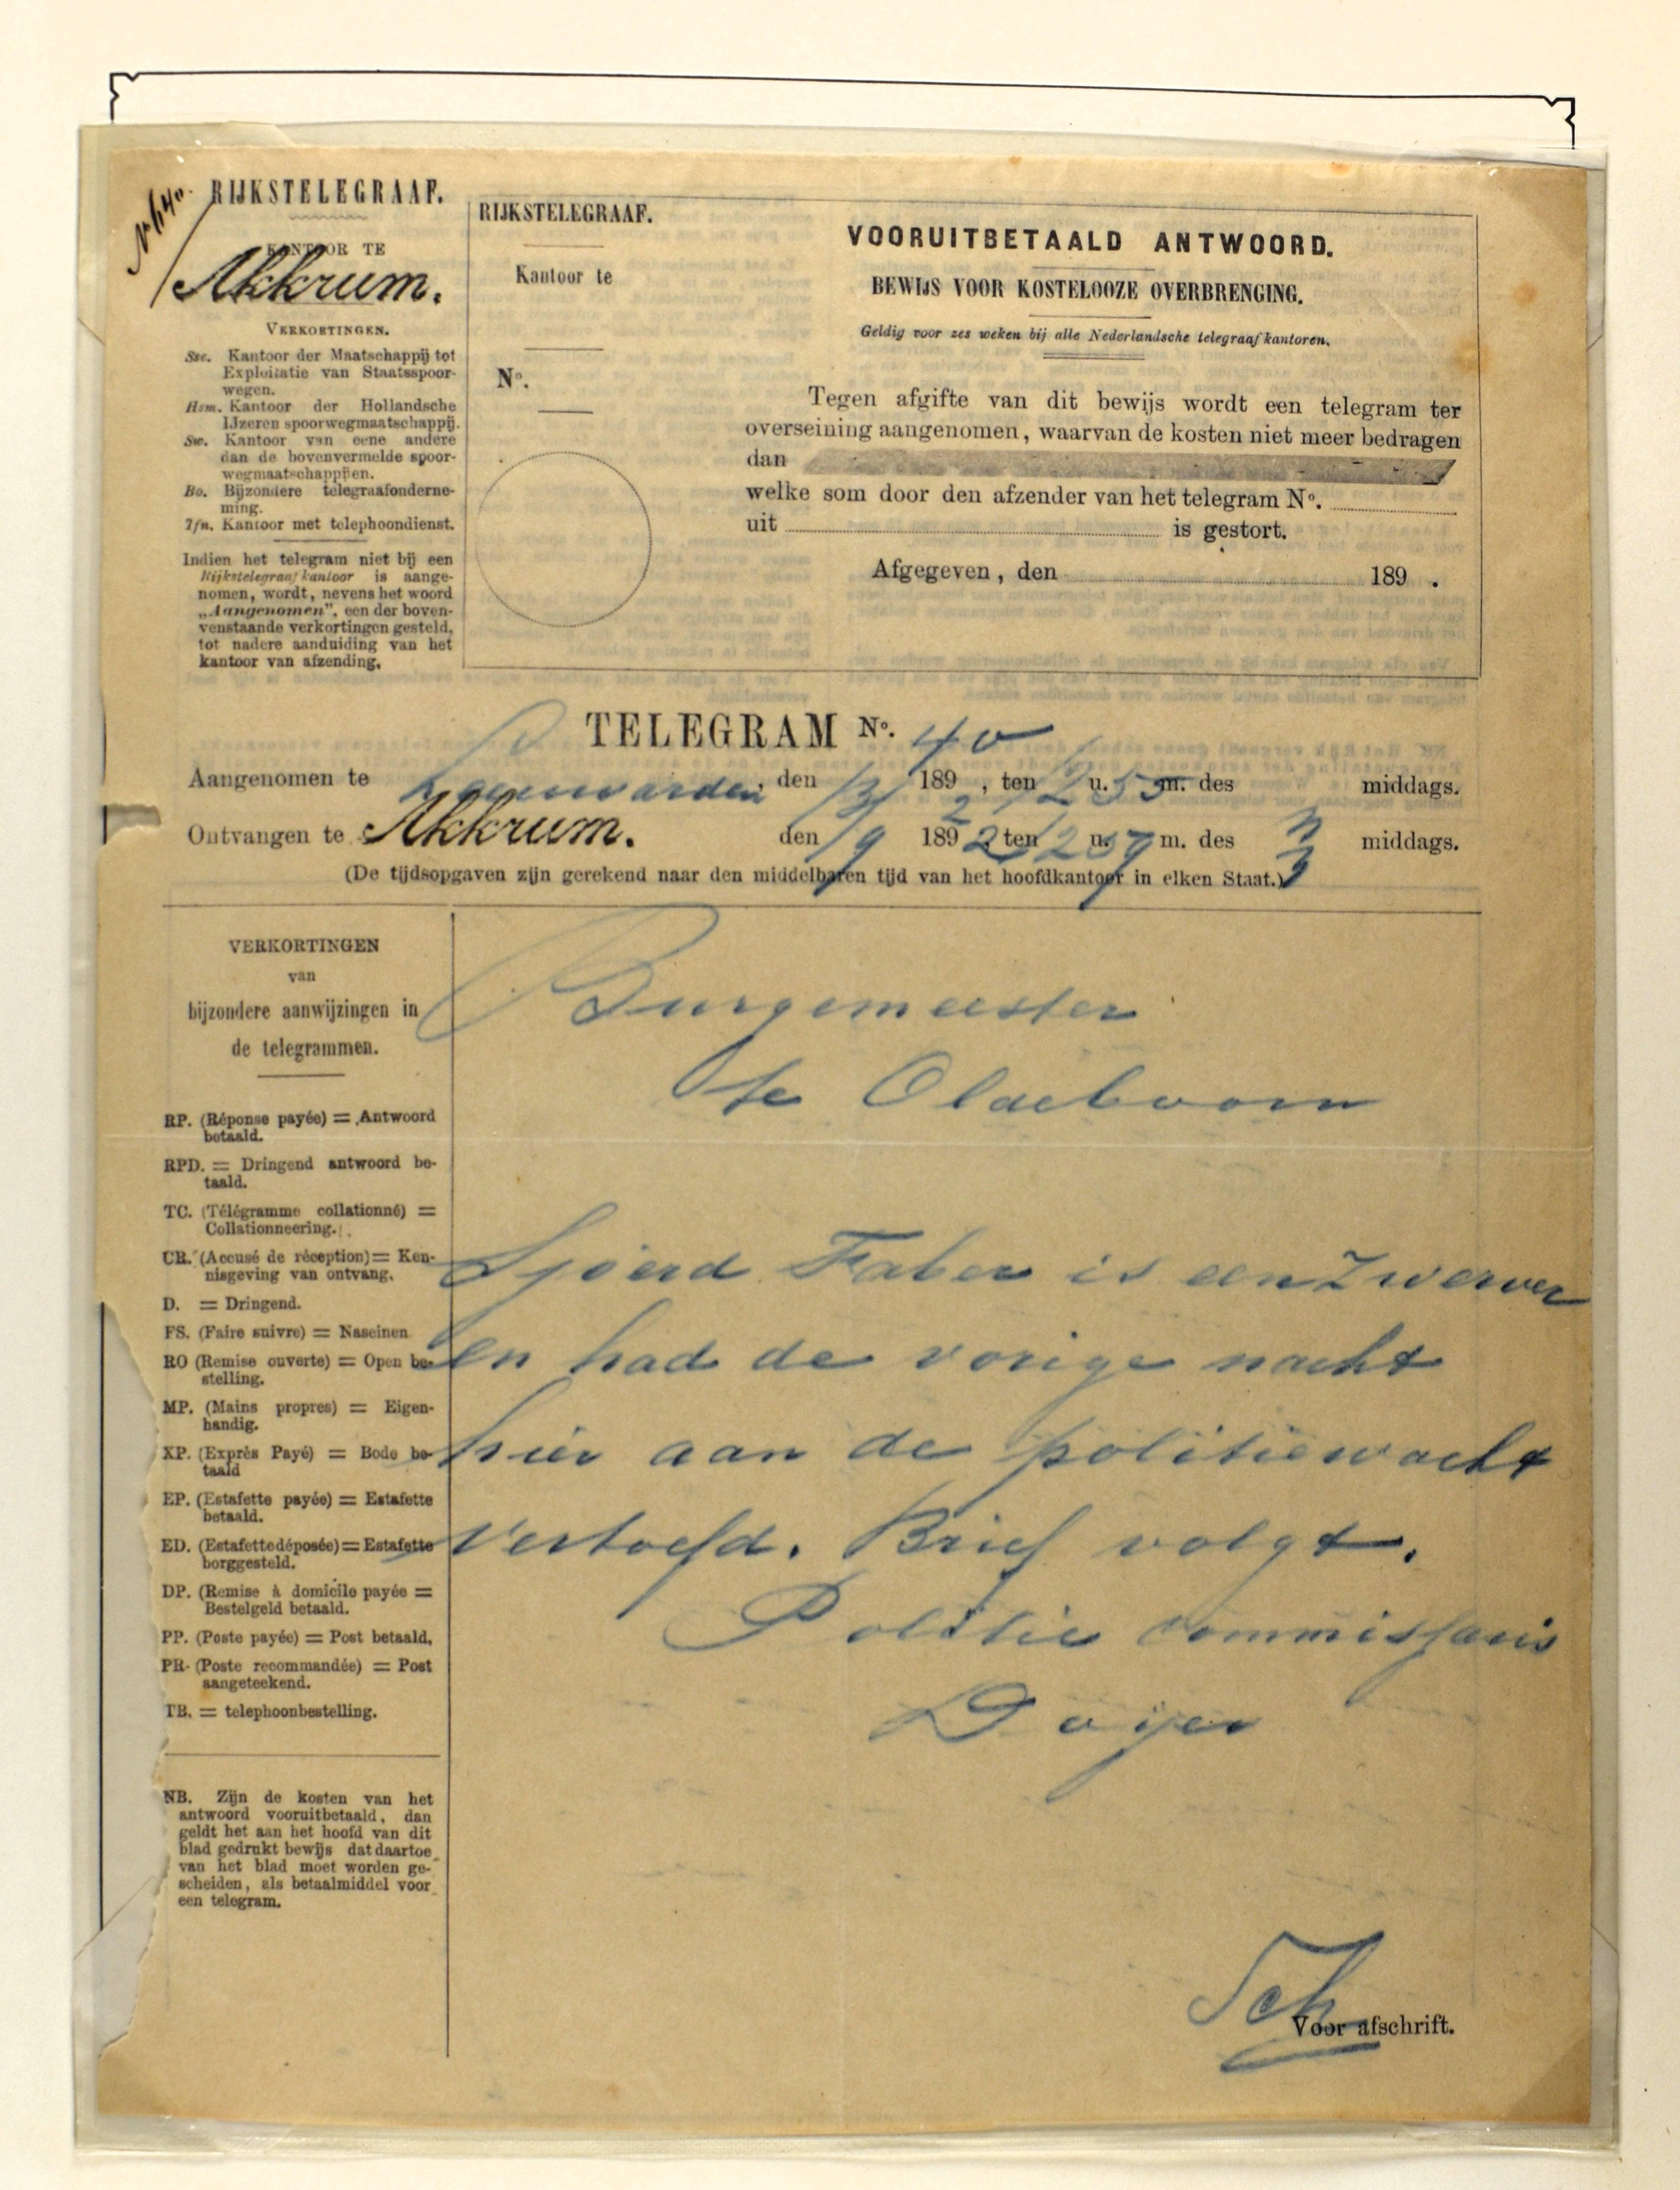 RIJKSTELEGRAAF.
KANTOOR TE
Akkrum.
VERKORTINGEN.
Ssc. Kantoor der Maatschappij tot
Exploitatie van Staatsspoor-
wegen.
Hsm. Kantoor der Hollandsche
IJzeren spoorwegmaatschappij.
Sw. Kantoor van eene andere
dan de bovenvermelde spoor-
wegmaatschappijen.
Bo. Bijzondere telegraafonderne-
ming.
Tfn. Kantoor met telephoondienst.
Indien het telegram niet bij een
Rijkstelegraafkantoor is aange-
nomen, wordt, nevens het woord
„Aangenomen", een der boven-
venstaande verkortingen gesteld,
tot nadere aanduiding van het
kantoor van afzending.
RIJKSTELEGRAAF.
Kantoor te
No.
VOORUITBETAALD ANTWOORD.
BEWIJS VOOR KOSTELOOZE OVERBRENGING.
Geldig voor zes weken bij alle Nederlandsche telegraafkantoren.
Tegen afgifte van dit bewijs wordt een telegram ter
overseining aangenomen, waarvan de kosten niet meer bedragen
dan
welke som door den afzender van het telegram No.
uit is gestort.
Afgegeven, den 189 .
TELEGRAM No. 40
Aangenomen te Leeuwarden, den 189 , ten 12 u. 55 m. des middags.
Ontvangen te Akkrum. den 189 2 ten 12 u. 57 m. des middags.
(De tijdsopgaven zijn gerekend naar den middelbaren tijd van het hoofdkantoor in elken Staat.)
VERKORTINGEN
van
bijzondere aanwijzingen in
de telegrammen.
RP. (Réponse payée) = Antwoord
betaald.
RPD. = Dringend antwoord be-
taald.
TC. (Télégramme collationné) =
Collationneering.
CR. (Accusé de réception) = Ken-
nisgeving van ontvang.
D. = Dringend.
FS. (Faire suivre) = Naseinen
RO (Remise ouverte) = Open be-
stelling.
MP. (Mains propres) = Eigen-
handig.
XP. (Exprès Payé) = Bode be-
taald
EP. (Estafette payée) = Estafette
betaald.
ED. (Estafette déposée) = Estafette
borggesteld.
DP. (Remise à domicile payée =
Bestelgeld betaald.
PP. (Poste payée) = Post betaald.
PR. (Poste recommandée) = Post
aangeteekend.
TB. = telephoonbestelling.
NB. Zijn de kosten van het
antwoord vooruitbetaald, dan
geldt het aan het hoofd van dit
blad gedrukt bewijs dat daartoe
van het blad moet worden ge-
scheiden, als betaalmiddel voor
een telegram.
Burgemeester
te Oldeboorn
Sjoerd Faber is een Zwerver
en had de vorige nacht
hier aan de politiewacht
vertoefd. Brief volgt.
Politie commissaris
Doijer
Sch
Voor afschrift.